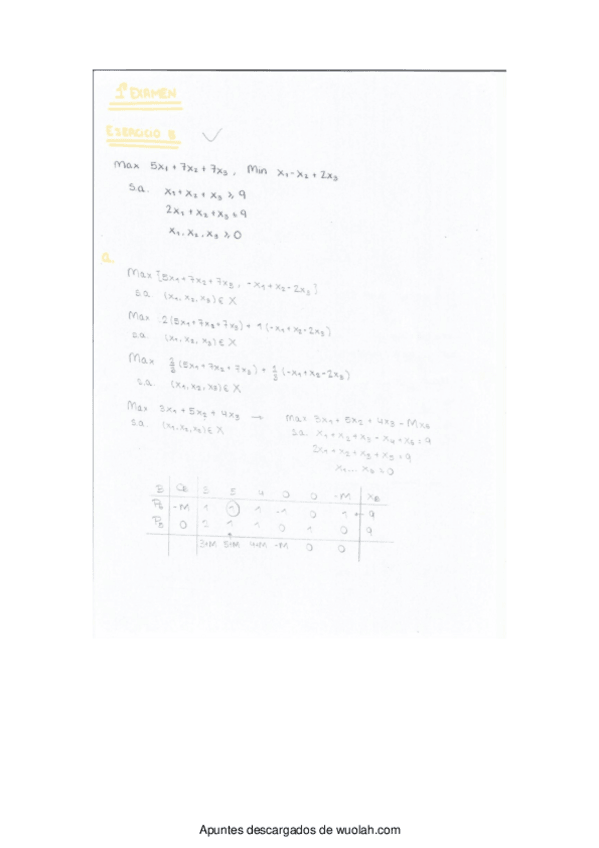 1º EXAMEN
EJERCICIO 8
Max 5x₁ + 7x₂ + 7x₃ , Min x₁ - x₂ + 2x₃
s.a. x₁ + x₂ + x₃ ≥ 9
2x₁ + x₂ + x₃ ≤ 9
x₁, x₂, x₃ ≥ 0
a.
Max [5x₁ + 7x₂ + 7x₃ , -x₁ + x₂ - 2x₃]
s.a. (x₁, x₂, x₃) ∈ X
Max 2(5x₁ + 7x₂ + 7x₃) + 1(-x₁ + x₂ - 2x₃)
s.a. (x₁, x₂, x₃) ∈ X
Max 2/3 (5x₁ + 7x₂ + 7x₃) + 1/3 (-x₁ + x₂ - 2x₃)
s.a. (x₁, x₂, x₃) ∈ X
Max 3x₁ + 5x₂ + 4x₃ → Max 3x₁ + 5x₂ + 4x₃ - Mx₆
s.a. (x₁, x₂, x₃) ∈ X s.a. x₁ + x₂ + x₃ - x₄ + x₆ = 9
2x₁ + x₂ + x₃ + x₅ = 9
x₁ ... x₆ ≥ 0
B CB 3 5 4 0 0 -M XB
P₆ -M 1 1 1 -1 0 1 ← 9
P₅ 0 2 1 1 0 1 0 9
3+M 5+M 4+M -M 0 0
Apuntes descargados de wuolah.com